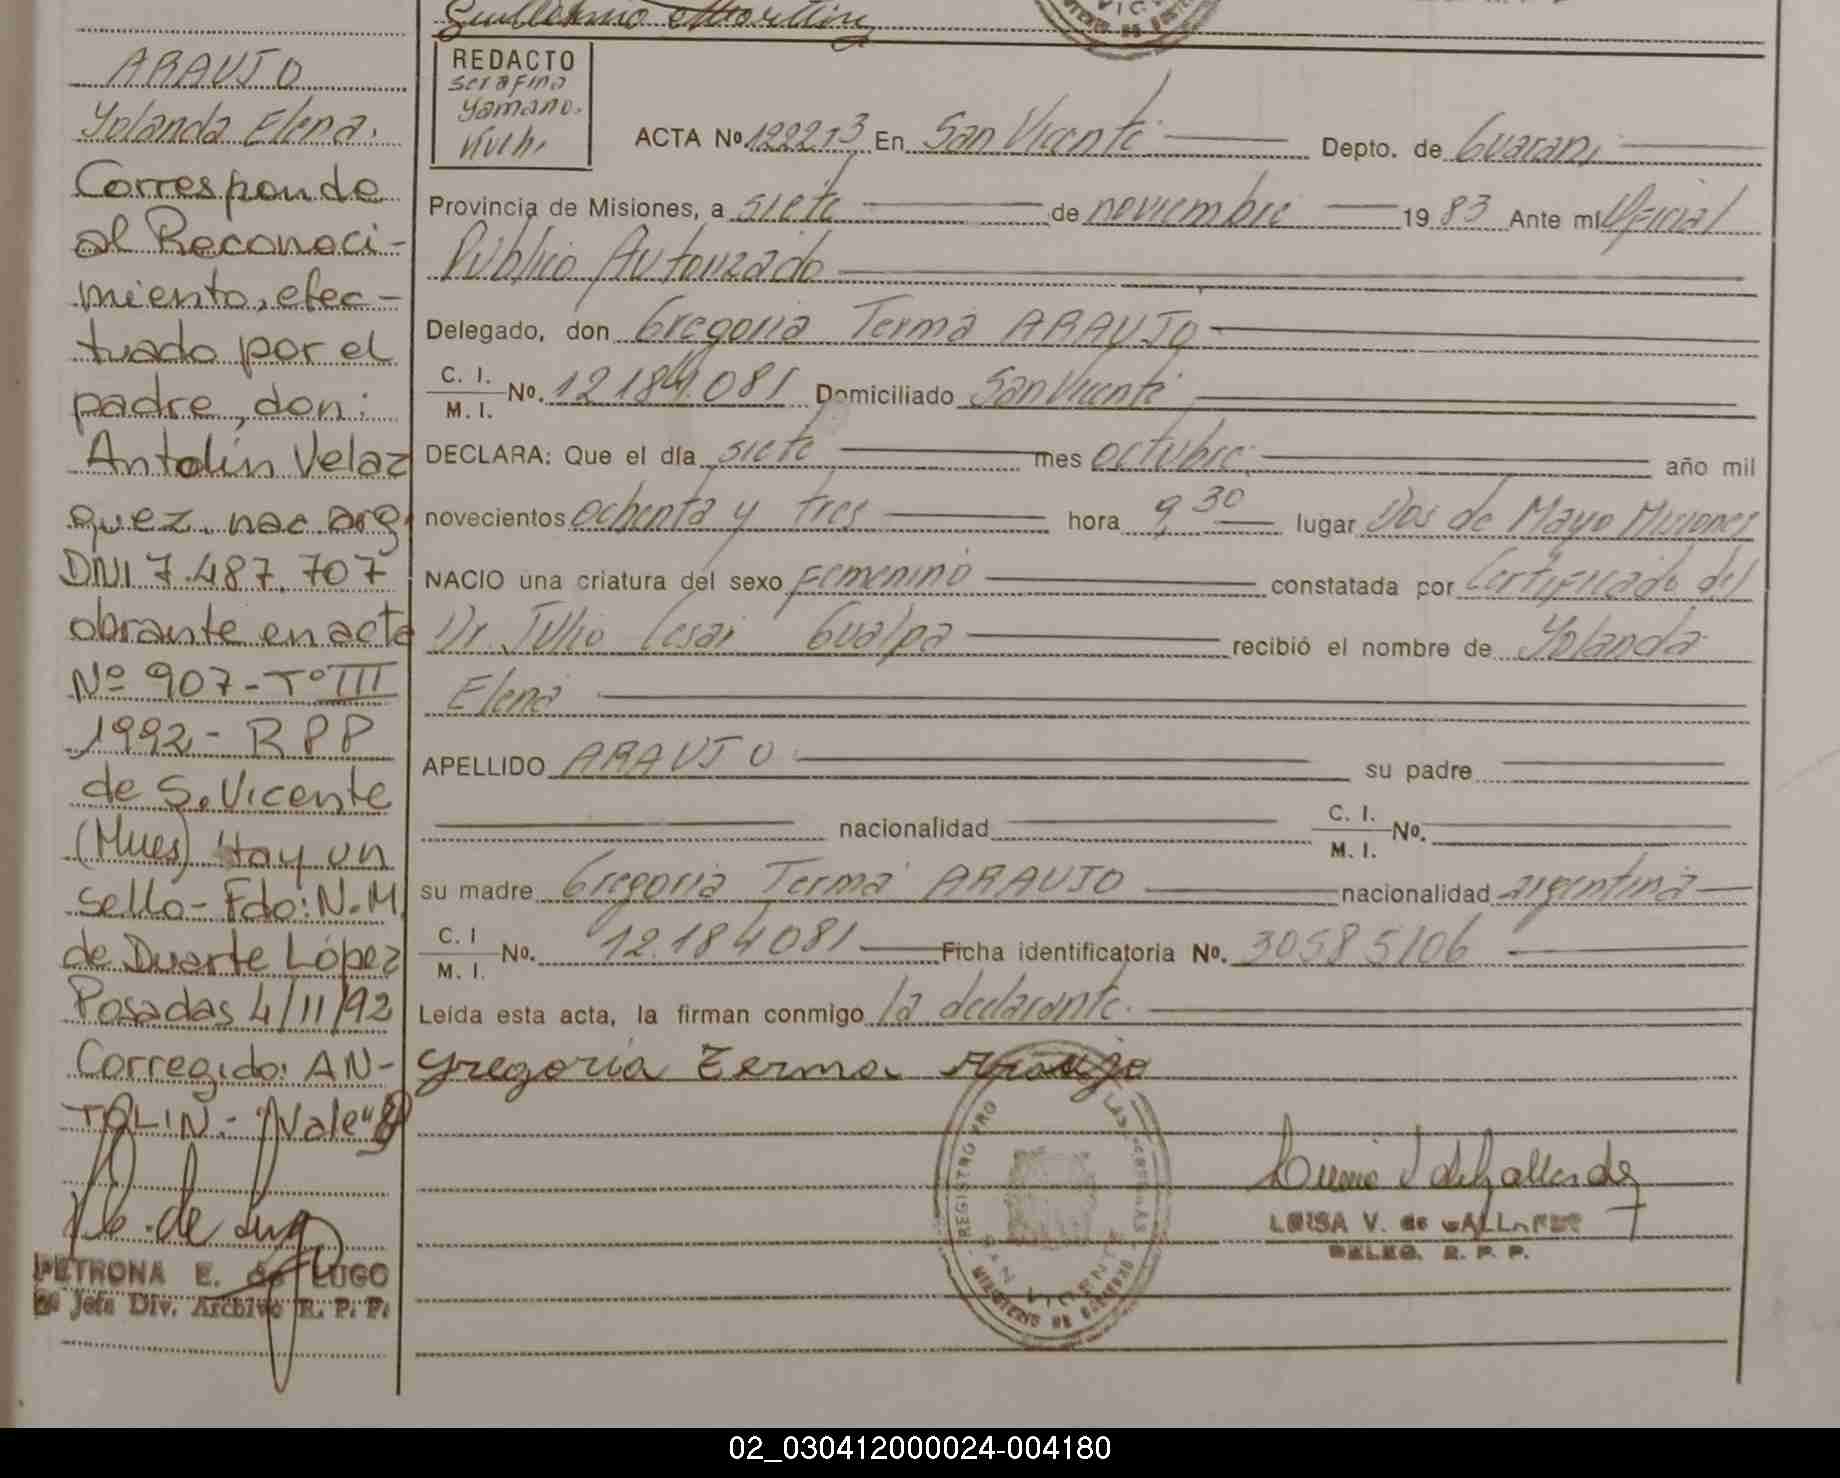 Guillermo Martin
ARAUJO
Yolanda Elena.
Corresponde
al Reconoci-
miento, efec-
tuado por el
padre, don:
Antolin Velaz
quez. nac arg.
DNI 7.487.707
obrante en acta
Nº 907-Tº III
1992- RPP
de S. Vicente
(Mnes) Hay un
sello- Fdo: N.M.
de Duarte López
Posadas 4/11/92
Corregido: AN-
TOLIN.- "Vale"
PETRONA E. de LUGO
Jefe Div. Archivo R. P. P.
REDACTO
Serafina
Yamano.
ACTA Nº 122213 En San Vicente Depto. de Guarani
Provincia de Misiones, a siete de noviembre 19 83 Ante mí Oficial
Público Autorizado
Delegado, don Gregoria Terma ARAUJO
C. I.
M. I. No. 12184.081 Domiciliado San Vicente
DECLARA: Que el día siete mes octubre. año mil
novecientos ochenta y tres hora 9,30 lugar Dos de Mayo Misiones
NACIO una criatura del sexo femenino constatada por Certificado del
Dr Julio Cesar Gualpa recibió el nombre de Yolanda
Elena
APELLIDO ARAUJO su padre
nacionalidad C. I.
M. I. No.
su madre Gregoria Terma ARAUJO nacionalidad argentina
C. I
M. I. No. 12.184081 Ficha identificatoria No. 30585106
Leída esta acta, la firman conmigo la declarante.
Gregoria Terma Araujo
REGISTRO PRO LAS PERSONAS
SAN VICENTE
MINISTERIO DE GOBIERNO
LUISA V. de GALLARDE
DELEG. R. P. P.
02_030412000024-004180